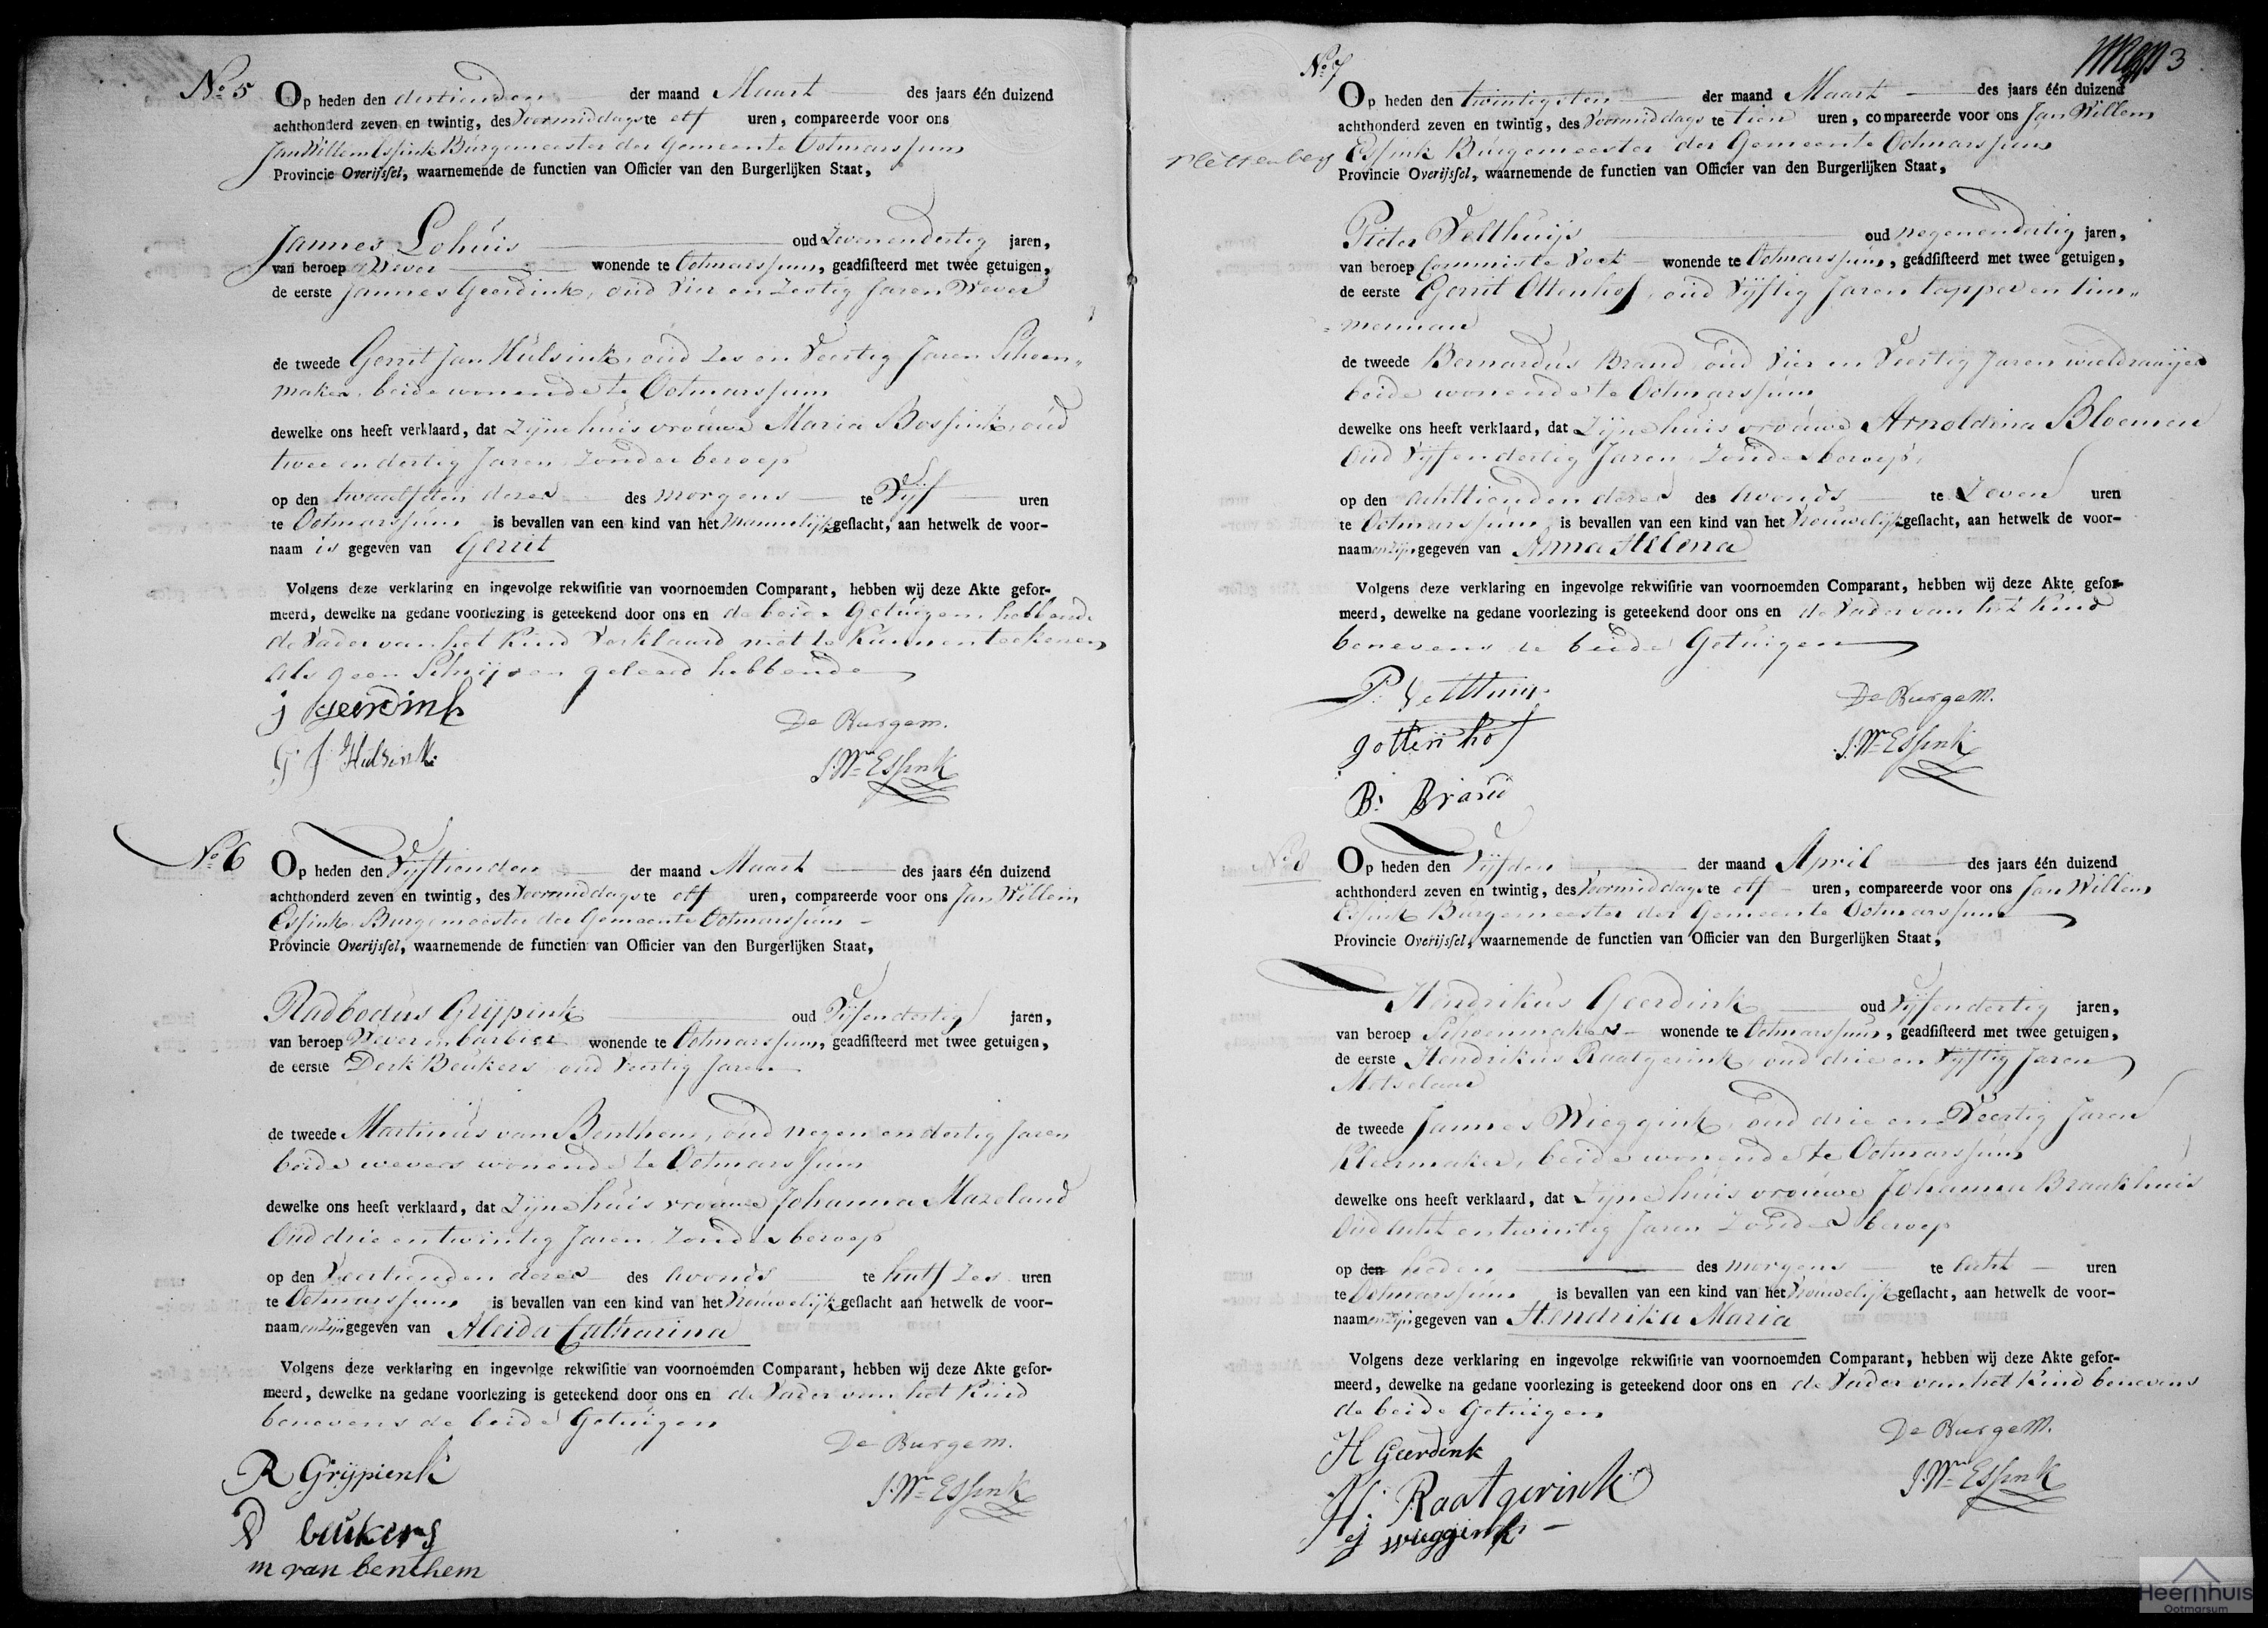 No 5 Op heden den dertienden der maand Maart des jaars één duizend
achthonderd zeven en twintig, des Voormiddags te elf uren, compareerde voor ons
Jan Willem Essink Burgemeester der Gemeente Ootmarssum
Provincie Overijssel, waarnemende de functien van Officier van den Burgerlijken Staat,
Jannes Lohuis oud Zevenendertig jaren,
van beroep Wever wonende te Ootmarssum, geadsisteerd met twee getuigen,
de eerste Jannes Geerdink, oud Vier en Zestig Jaren Wever
de tweede Gerrit Jan Hulsink, oud Zes en Veertig Jaren Schoen„
maker, beide wonende te Ootmarssum
dewelke ons heeft verklaard, dat Zijne huisvrouwe Maria Bossink, oud
twee en dertig Jaren, Zonder beroep
op den twaalfden dezer des morgens te Vijf uren
te Ootmarssum is bevallen van een kind van het Mannelijk geslacht, aan hetwelk de voor-
naam is gegeven van Gerrit
Volgens deze verklaring en ingevolge rekwisitie van voornoemden Comparant, hebben wij deze Akte gefor-
meerd, dewelke na gedane voorlezing is geteekend door ons en de beide Getuigen, hebbende
de Vader van het Kind Verklaard niet te Kunnen teekenen
als geen Schrijven geleerd hebbende
j geerdink
G J Hulsink
De Burgem.
J. Wm Essink
No 6 Op heden den Vijftienden der maand Maart des jaars één duizend
achthonderd zeven en twintig, des Voormiddags te elf uren, compareerde voor ons Jan Willem
Essink, Burgemeester der Gemeente Ootmarssum
Provincie Overijssel, waarnemende de functien van Officier van den Burgerlijken Staat,
Radbodus Grijpink oud Vijfendertig jaren,
van beroep Wever en barbier wonende te Ootmarssum, geadsisteerd met twee getuigen,
de eerste Derk Beukers oud Veertig Jaren
de tweede Martinus van Benthem, oud negen en dertig Jaren
beide wevers wonende te Ootmarssum
dewelke ons heeft verklaard, dat Zijne huisvrouwe Johanna Mazeland
Oud drie en twintig Jaren Zonder beroep
op den Veertienden dezer des Avonds te half Zes uren
te Ootmarssum is bevallen van een kind van het Vrouwelijk geslacht aan hetwelk de voor-
naamen zijn gegeven van Aleida Catharina
Volgens deze verklaring en ingevolge rekwisitie van voornoemden Comparant, hebben wij deze Akte gefor-
meerd, dewelke na gedane voorlezing is geteekend door ons en de Vader van het Kind
benevens de beide Getuigen
R Grijpienk
D beukers
m van benthem
De Burgem.
J. Wm Essink
3
No 7
Op heden den twintigsten der maand Maart des jaars één duizend
achthonderd zeven en twintig, des Voormiddags te tien uren, compareerde voor ons Jan Willem
Essink Burgemeester der Gemeente Ootmarssum
Plettenberg
Provincie Overijssel, waarnemende de functien van Officier van den Burgerlijken Staat,
Pieter Velthuijs oud negenendertig jaren,
van beroep wonende te Ootmarssum, geadsisteerd met twee getuigen,
de eerste Gerrit Ottenhof, oud Vijftig Jaren tapper en tim„
merman
de tweede Bernardus Brand oud Vier en Veertig Jaren wieldraaijer
beide wonende te Ootmarssum
dewelke ons heeft verklaard, dat Zijne huisvrouwe Arnoldina Bloemen
Oud Vijfendertig Jaren, Zonder beroep,
op den achttienden dezer des Avonds te Zeven uren
te Ootmarssum is bevallen van een kind van het Vrouwelijk geslacht, aan hetwelk de voor-
naamen zijn gegeven van Anna Helena
Volgens deze verklaring en ingevolge rekwisitie van voornoemden Comparant, hebben wij deze Akte gefor-
meerd, dewelke na gedane voorlezing is geteekend door ons en de Vader van het Kind
benevens de beide Getuigen
P. Velthuijs
g ottenhof
B: Brand
De Burgem.
J. Wm Essink
No 8 Op heden den Vijfden der maand April des jaars één duizend
achthonderd zeven en twintig, des Voormiddags te elf uren, compareerde voor ons Jan Willem
Essink Burgemeester der Gemeente Ootmarssum
Provincie Overijssel, waarnemende de functien van Officier van den Burgerlijken Staat,
Hendrikus Geerdink oud Vijfendertig jaren,
van beroep Schoenmaker wonende te Ootmarssum, geadsisteerd met twee getuigen,
de eerste Hendrikus Raatgerink, oud drie en Vijftig Jaren
Metselaar
de tweede Jannes Wieggink, oud drie en Veertig Jaren
Kleermaker, beide wonende te Ootmarssum
dewelke ons heeft verklaard, dat Zijne huisvrouwe Johanna Braakhuis
Oud acht en twintig Jaren Zonder beroep
op den heden des morgens te acht uren
te Ootmarssum is bevallen van een kind van het Vrouwelijk geslacht, aan hetwelk de voor-
naamen zijn gegeven van Hendrika Maria
Volgens deze verklaring en ingevolge rekwisitie van voornoemden Comparant, hebben wij deze Akte gefor-
meerd, dewelke na gedane voorlezing is geteekend door ons en de Vader van het Kind benevens
de beide Getuigen
H Geerdink
H: Raatgerink
J wieggink
De Burgem.
J. Wm Essink
Heernhuis
Ootmarsum